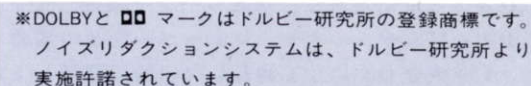 ※DOLBYと マークはドルビー研究所の登録商標です。
ノイズリダクションシステムは、ドルビー研究所より
実施許諾されています。